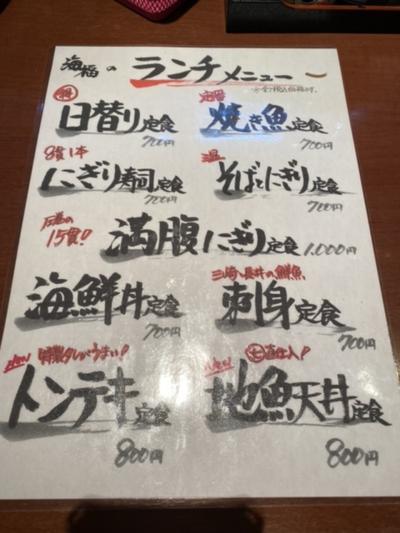 海福のランチメニュー
※全て税込価格です。
日替り定食
700円
定番
焼き魚定食
700円
8貫1本
にぎり寿司定食
700円
温
そばとにぎり定食
700円
15貫!!
満腹にぎり定食 1,000円
海鮮丼定食
700円
三崎・長井の鮮魚
刺身定食
700円
New 特製タレがうまい!
トンテキ定食
800円
New 直仕入!
地魚天丼定食
800円